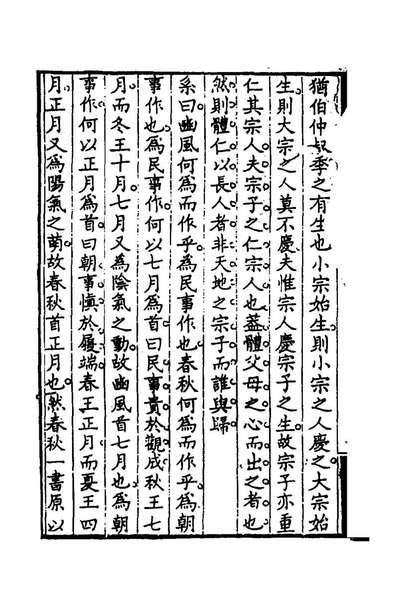 猶伯仲叔季之有生也小宗始生則小宗之人慶之大宗始
生則大宗之人莫不慶夫惟宗人慶宗子之生故宗子亦重
仁其宗人夫宗子之仁宗人也蓋體父母之心而出之者也
然則體仁以長人者非天地之宗子而誰與歸
系曰豳風何為而作乎為民事作也春秋何為而作乎為朝
事作也為民事作何以七月為首曰民事貴於觀成秋王七
月而冬王十月七月又為陰氣之動故豳風首七月也為朝
事作何以正月為首曰朝事慎於履端春王正月而夏王四
月正月又為陽氣之萌故春秋首正月也然春秋一書原以